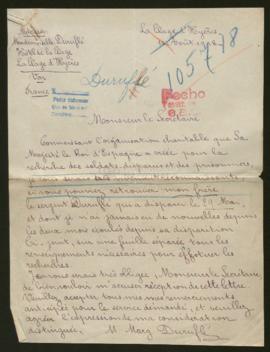 Mademoiselle Duruflé
Hôtel de la Plage
La Plage d'Hyères
Var
France
La Plage d'Hyères
Août 1918
Duruflé
1057/8
Fecho
Monsieur le Secrétaire
Connaissant l'organisation charitable que Sa
Majesté le Roi d'Espagne a créée pour la
recherche des soldats disparus et des prisonniers,
je vous serais très reconnaissante
si vous pouviez retrouver mon frère
le sergent Duruflé qui a disparu le 29 Mai
et dont je n'ai jamais eu de nouvelles depuis
les deux mois écoulés depuis sa disparition
Ci-joint, sur une feuille séparée tous les
renseignements nécessaires pour effectuer les
recherches
Je vous serais très obligée, Monsieur le Secrétaire
de m'accuser réception de cette lettre
Veuillez accepter tous mes remerciements
anticipés pour le service demandé, et veuillez
agréer l'expression de ma considération
distinguée. M Marg Duruflé